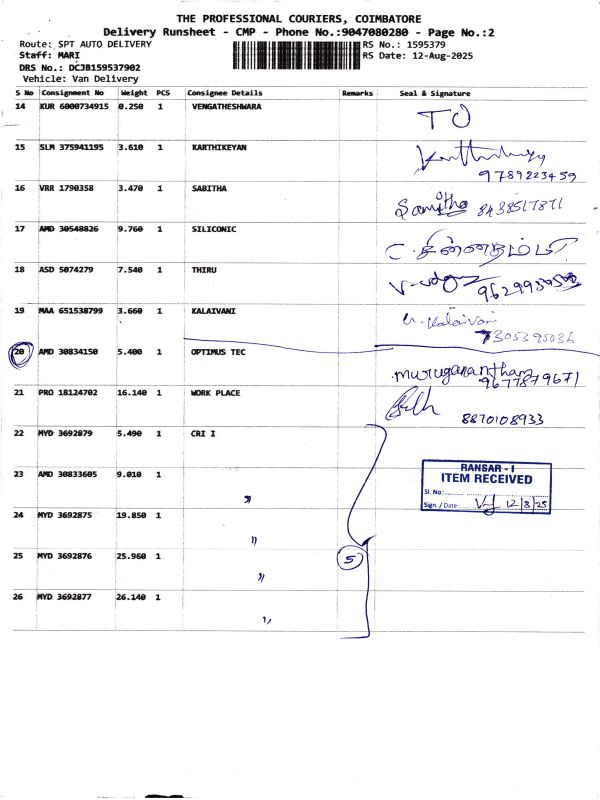 THE PROFESSIONAL COURIERS, COIMBATORE
Delivery Runsheet - CMP - Phone No.:9047080280 - Page No.:2
Route: SPT AUTO DELIVERY RS No.: 1595379
Staff: MARI RS Date: 12-Aug-2025
DRS No.: DCJB159537902
Vehicle: Van Delivery
S No Consignment No Weight PCS Consignee Details Remarks Seal & Signature
14 KUR 6000734915 0.250 1 VENGATHESHWARA TO
15 SLM 375941195 3.610 1 KARTHIKEYAN
9789223459
16 VRR 1790358 3.470 1 SABITHA 8438517871
17 AMD 30548826 9.760 1 SILICONIC C. சின்னதம்பி
18 ASD 5074279 7.540 1 THIRU
19 MAA 651538799 3.660 1 KALAIVANI Kalaivani
7305395036
20 AMD 30834150 5.400 1 OPTIMUS TEC Muruganantham
9677879671
21 PRO 18124702 16.140 1 WORK PLACE
8870108933
22 MYD 3692879 5.490 1 CRI I
RANSAR - I
ITEM RECEIVED
23 AMD 30833605 9.010 1 〃
Sl. No:
Sign. / Date: 12/8/25
24 MYD 3692875 19.850 1 〃
25 MYD 3692876 25.960 1 〃 5
26 MYD 3692877 26.140 1 〃